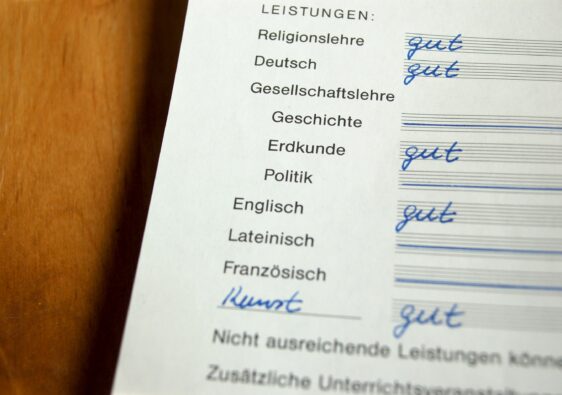 LEISTUNGEN:
Religionslehre gut
Deutsch gut
Gesellschaftslehre
Geschichte
Erdkunde gut
Politik
Englisch gut
Lateinisch
Französisch
Kunst gut
Nicht ausreichende Leistungen könne
Zusätzliche Unterrichtsveranstaltun